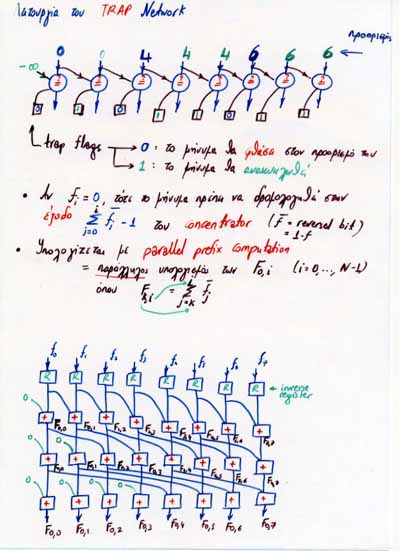 Λειτουργία του TRAP Network
0 0 4 4 4 6 6 6 ← προορισμός
-∞
= = = = = = = =
0 1 0 1 1 0 1 1
trap flags → 0 : το μήνυμα θα φθάσει στον προορισμό του
→ 1 : το μήνυμα θα
• Αν fᵢ = 0, τότε το μήνυμα πρέπει να δρομολογηθεί στην
έξοδο Σ f̄ⱼ - 1 του concentrator (f̄ = reversed bit)
j=0
= 1-f
• Υπολογίζεται με parallel prefix computation
= παράλληλος υπολογισμός των F₀,ᵢ (i=0,..., N-1)
όπου Fₖ,ᵢ = Σ f̄ⱼ
j=k
f₀ f₁ f₂ f₃ f₄ f₅ f₆ f₇
R R R R R R R R ← inverse register
0
+ + + + + + + +
F₀,₀ F₀,₁ F₁,₂ F₂,₃ F₃,₄ F₄,₅ F₅,₆ F₆,₇
0 0
+ + + + + + + +
0 0 0 0
+ + + + + + + +
F₀,₀ F₀,₁ F₀,₂ F₀,₃ F₀,₄ F₀,₅ F₀,₆ F₀,₇